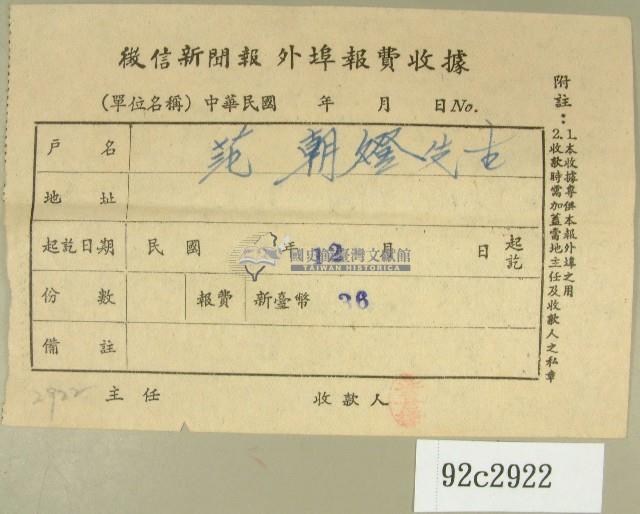 徵信新聞報 外埠報費收據
(單位名稱) 中華民國 年 月 日 No.
戶名 范朝燈先生
地址
起訖日期 民國 年 12 月 日 起訖
份數 報費 新臺幣 36
備註
主任 收款人
附註：
1.本收據專供本報外埠之用
2.收款時需加蓋當地主任及收款人之私章
國史館臺灣文獻館
TAIWAN HISTORICA
2922
92c2922